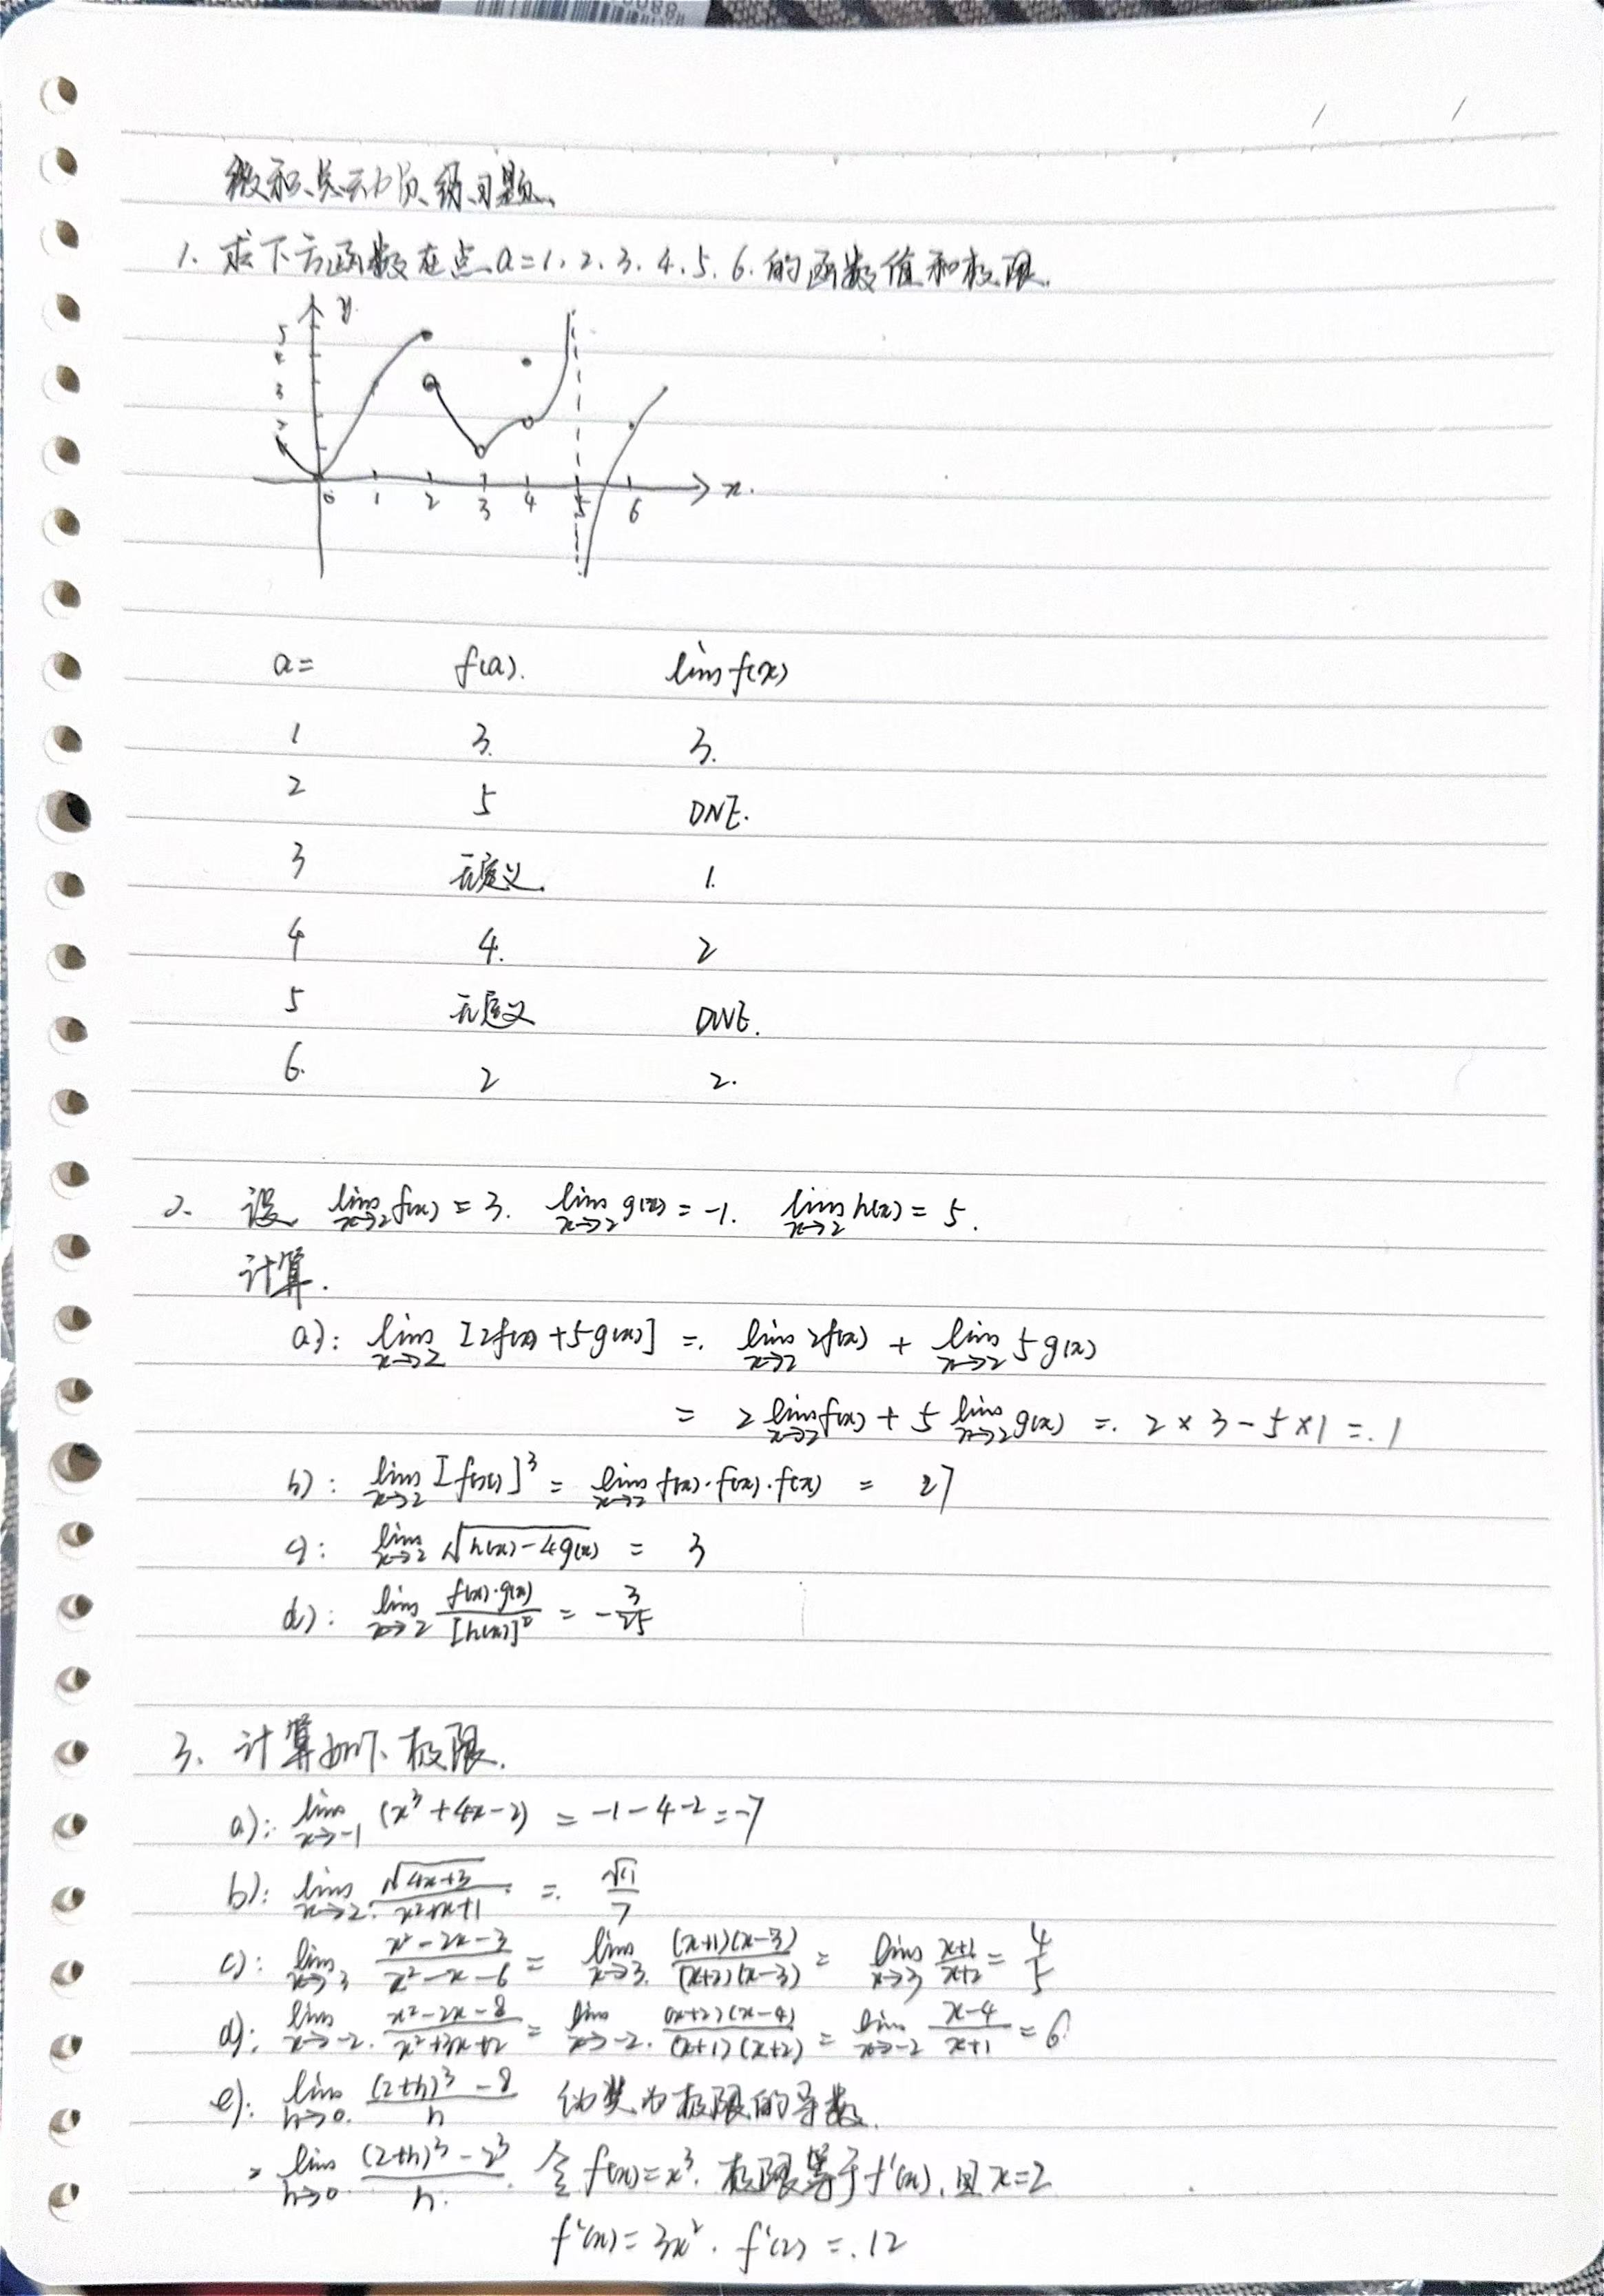 微积总动员练习题、
1. 求下方函数在点 a=1、2、3、4、5、6、的函数值和极限.
y
5
4
3
2
0 1 2 3 4 5 6 x.
a= f(a). lim f(x)
1 3. 3.
2 5 DNE.
3 无定义. 1.
4 4. 2
5 无定义 DNE.
6. 2 2.
2. 设 lim_{x→2} f(x) = 3. lim_{x→2} g(x) = -1. lim_{x→2} h(x) = 5.
计算.
a): lim_{x→2} [2f(x)+5g(x)] = lim_{x→2} 2f(x) + lim_{x→2} 5g(x)
= 2 lim_{x→2} f(x) + 5 lim_{x→2} g(x) = 2×3-5×1 = 1
b): lim_{x→2} [f(x)]³ = lim_{x→2} f(x)·f(x)·f(x) = 27
c): lim_{x→2} √(h(x)-4g(x)) = 3
d): lim_{x→2} f(x)·g(x)/[h(x)]² = -3/25
3、计算如下极限.
a): lim_{x→-1} (x³+4x-2) = -1-4-2 = -7
b): lim_{x→2} √(4x+3)/(x²+x+1) = √11/7
c): lim_{x→3} (x²-2x-3)/(x²-x-6) = lim_{x→3} (x+1)(x-3)/(x+2)(x-3) = lim_{x→3} (x+1)/(x+2) = 4/5
d): lim_{x→-2} (x²-2x-8)/(x²+3x+2) = lim_{x→-2} (x+2)(x-4)/(x+1)(x+2) = lim_{x→-2} (x-4)/(x+1) = 6
e): lim_{h→0} ((2+h)³-8)/h 伪装为极限的导数.
= lim_{h→0} ((2+h)³-2³)/h. 令 f(x)=x³. 极限等于f'(x), 且x=2
f'(x)=3x². f'(2)=12